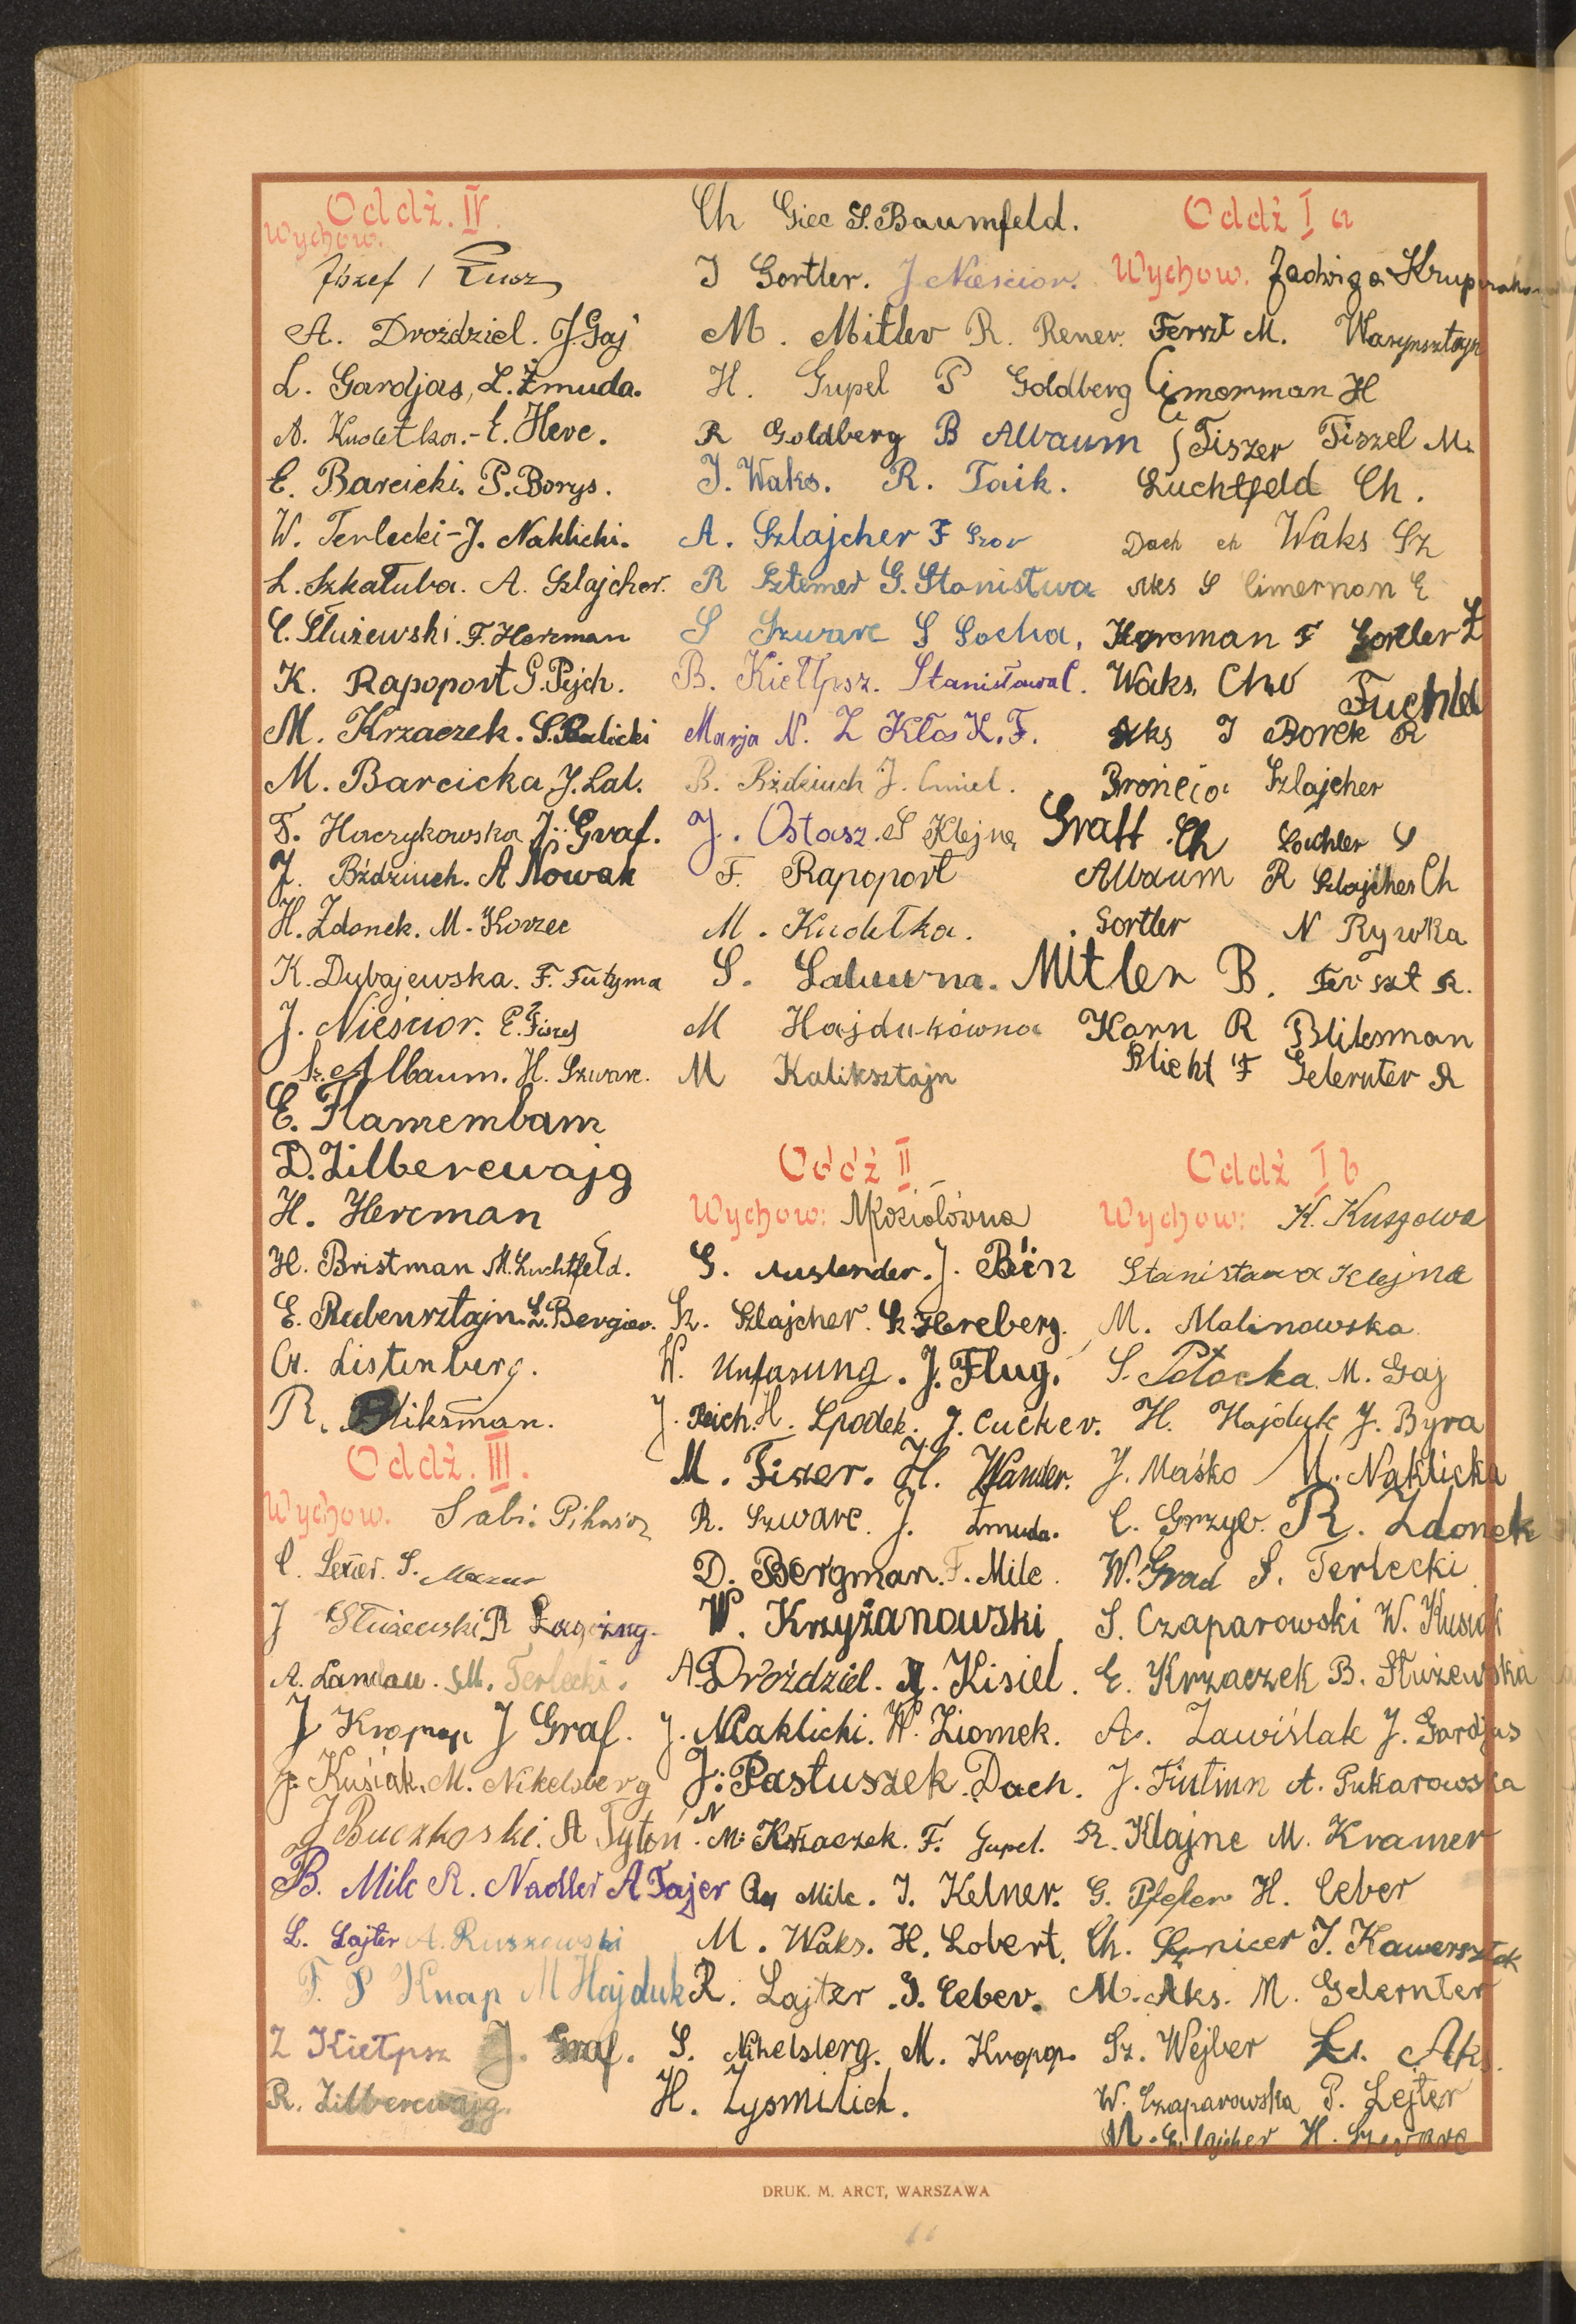 Oddź. IV.
Wychow.
Józef
A. Droździel. J. Gaj
L. Gardjas, L. Żmuda.
A. Kudełka. - E. Herc.
E. Barcicki. P. Borys.
W. Terlecki - J. Naklicki.
L. Szkatuba. A. Szlajcher.
C. Służewski. F. Hercman
K. Rapoport G. Pejch.
M. Krzaczek. S. Skalicki
M. Barcicka J. Lal.
T. Harczykowska J. Graf.
J. Bździuch. A Nowak
H. Zdonek. M. Korzec
K. Dybajewska. F. Futyma
J. Nieścior. E. Fiszel
Sz. Albaum. H. Szwarc.
E. Flamembam
D. Zilbercwajg
H. Hercman
H. Bristman M. Luchtfeld.
E. Rubensztajn. L. Bergier.
Ch. Listenberg.
R. Bliksman.
Oddź. III.
Wychow. Sabi.
C. Lexier. S. Mazur
J Służewski R
A. Landau. M. Terlecki.
J Kropop J Graf.
J. Kuśiak. M. Nikelsberg
J Buczkoski. A Tytoń
B. Milc R. Nadler A Fajer
L. Lajter A. Ruszkowski
F. P Knap M Hajduk
Z Kiełpsz J. Graf.
R. Zilbercwajg.
Ch Giec S. Baumfeld.
I Gortler. J Nieścior.
M. Mitler R. Rener.
H. Gupel P Goldberg
R Goldberg B Albaum
J. Waks. R. Taik.
A. Szlajcher F Szor
R Sztemer G. Stanistwa
S Szwarc S Socha,
B. Kiełpsz. Stanisława C.
Marja N. Z Kłos K. F.
B. Bździuch J. Cmiel.
J. Ostasz. S Klejna
F. Rapoport
M. Kudełka.
S. Laluwna.
M Hajdukówna
M Kaliksztajn
Oddź II
Wychow: M Koziołówna
G. Auslender. J. Bin
Sz. Szlajcher. Sz. Hercberg.
W. Unfasung. J. Flug.
J. Reich. H. Spodek. J. Cucker.
M. Fiszer. H. Wander.
R. Szwarc. J. Żmuda.
D. Bergman. F. Milc.
W. Krzyżanowski
A Droździel. M. Kisiel.
J. Naklicki. W. Ziomek.
J. Pastuszek. Dach.
N. M. Krzaczek. F. Gupel.
Milc. I. Kelner.
M. Waks. H. Lobert.
R. Lajter. I. Ceber.
S. Nikelsberg. M. Kropop.
H. Zysmilich.
Oddź I a
Wychow. Jadwiga
Ferszt M.
Cimerman H
Fiszer Fiszel M.
Luchtfeld Ch.
Dach ch Waks Sz
Aks S Cimerman E
Hercman F Gortler Z
Waks, Cha Fuchfeld
Aks I Borek R
Broncia Szlajcher
Graff Ch Lochler S
Albaum R Szlajcher Ch
Gortler N Rywka
Mitler B. Ferszt R.
Korn R Bliksman
Blicht F Gelernter R
Oddź I b
Wychow: K. Kuszowa
Stanisława Klejna
M. Malinowska
S. Potocka. M. Gaj
H. Hajduk J. Byra
J. Maśko M. Naklicka
C. Grzyb. R. Zdonek
W. Grad S. Terlecki
S. Czaparowski W. Kusiak
E. Krzaczek B. Służewska
A. Zawiślak J. Gardjas
J. Fiutiun A. Pukarowska
R. Klajne M. Kramer
G. Pfefer H. Ceber
Ch. Sznicer I. Kawersztok
M. Aks. M. Gelernter
Sz. Wejber Aks.
W. Czaparowska P. Lejter
M. Szlajcher H. Szwarc
DRUK. M. ARCT, WARSZAWA